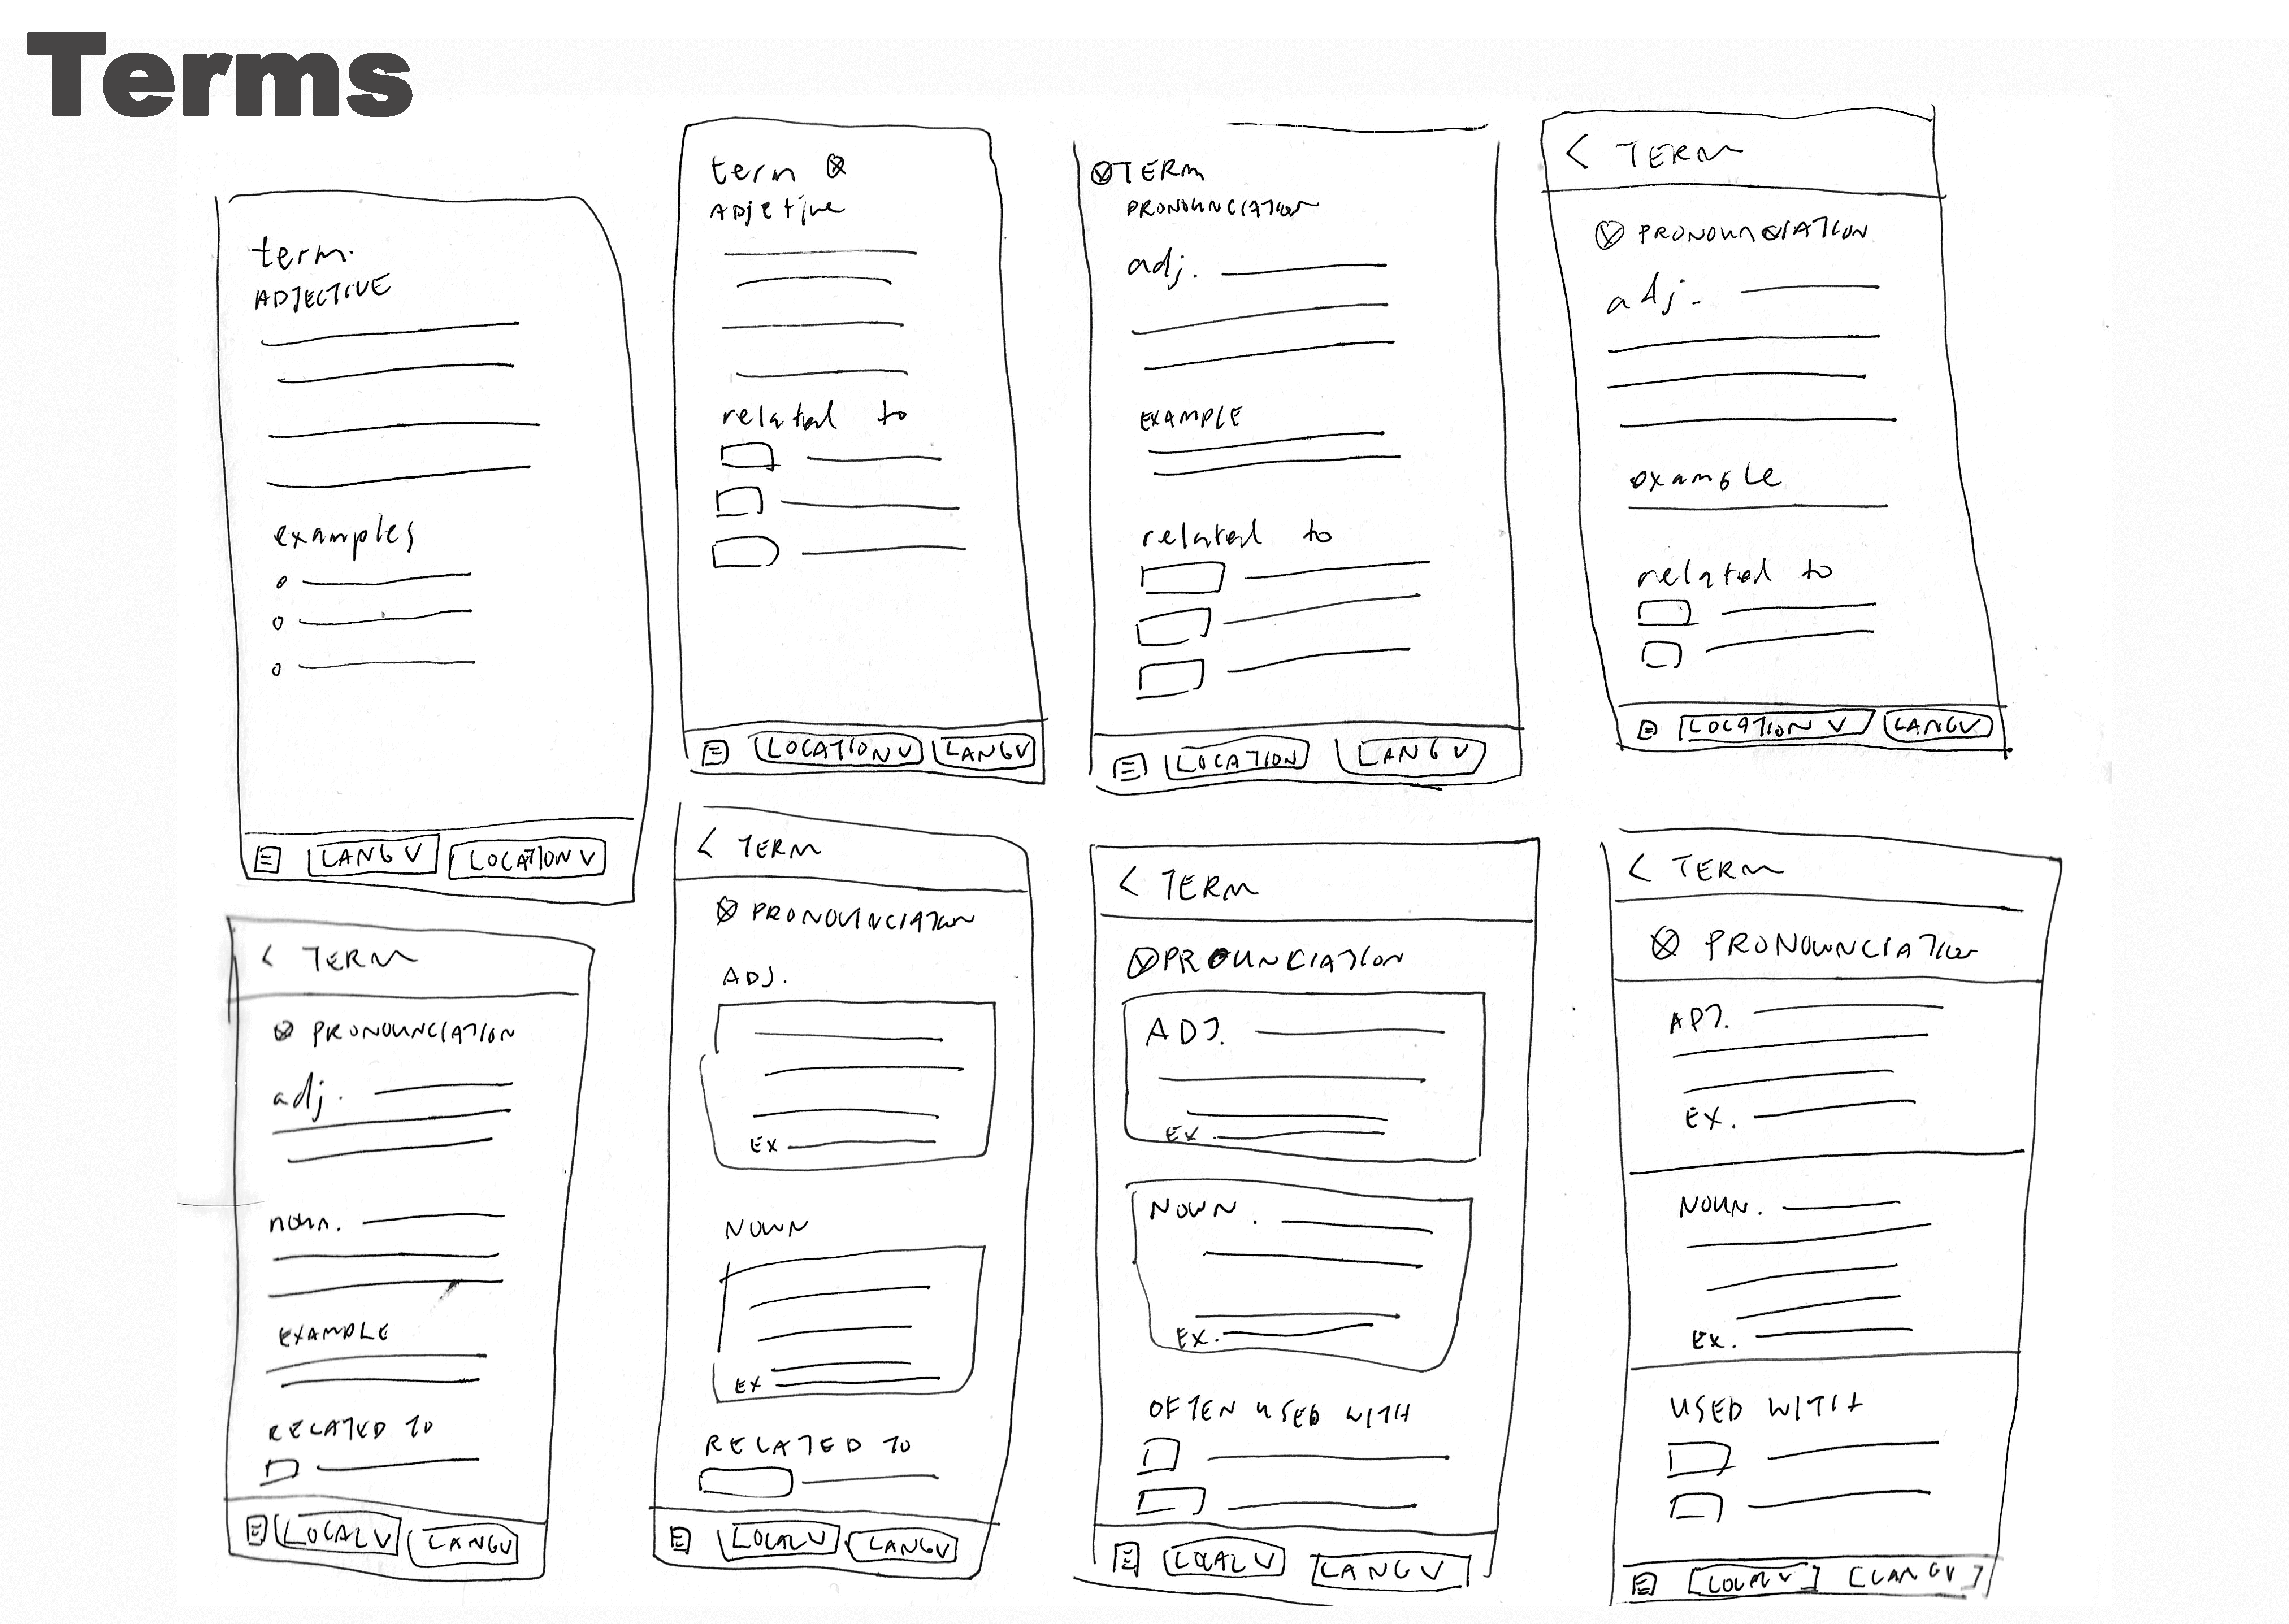 Terms
term.
ADJECTIVE
examples
LANG V
LOCATION V
term
ADJETIVE
related to
LOCATION V
LANG V
TERM
PRONOUNCIATION
adj.
EXAMPLE
related to
LOCATION
LANG V
< TERM
PRONOUNCIATION
adj.
example
related to
LOCATION V
LANG V
< TERM
PRONOUNCIATION
adj.
noun.
EXAMPLE
RELATED TO
LOCAL V
LANG V
< TERM
PRONOUNCIATION
ADJ.
EX
NOUN
EX
RELATED TO
LOCAL V
LANG V
< TERM
PROUNCIATION
ADJ.
EX.
NOUN.
EX.
OFTEN USED WITH
LOCAL V
LANG V
< TERM
PRONOUNCIATION
ADJ.
EX.
NOUN.
EX.
USED WITH
LOCAL V
LANG V